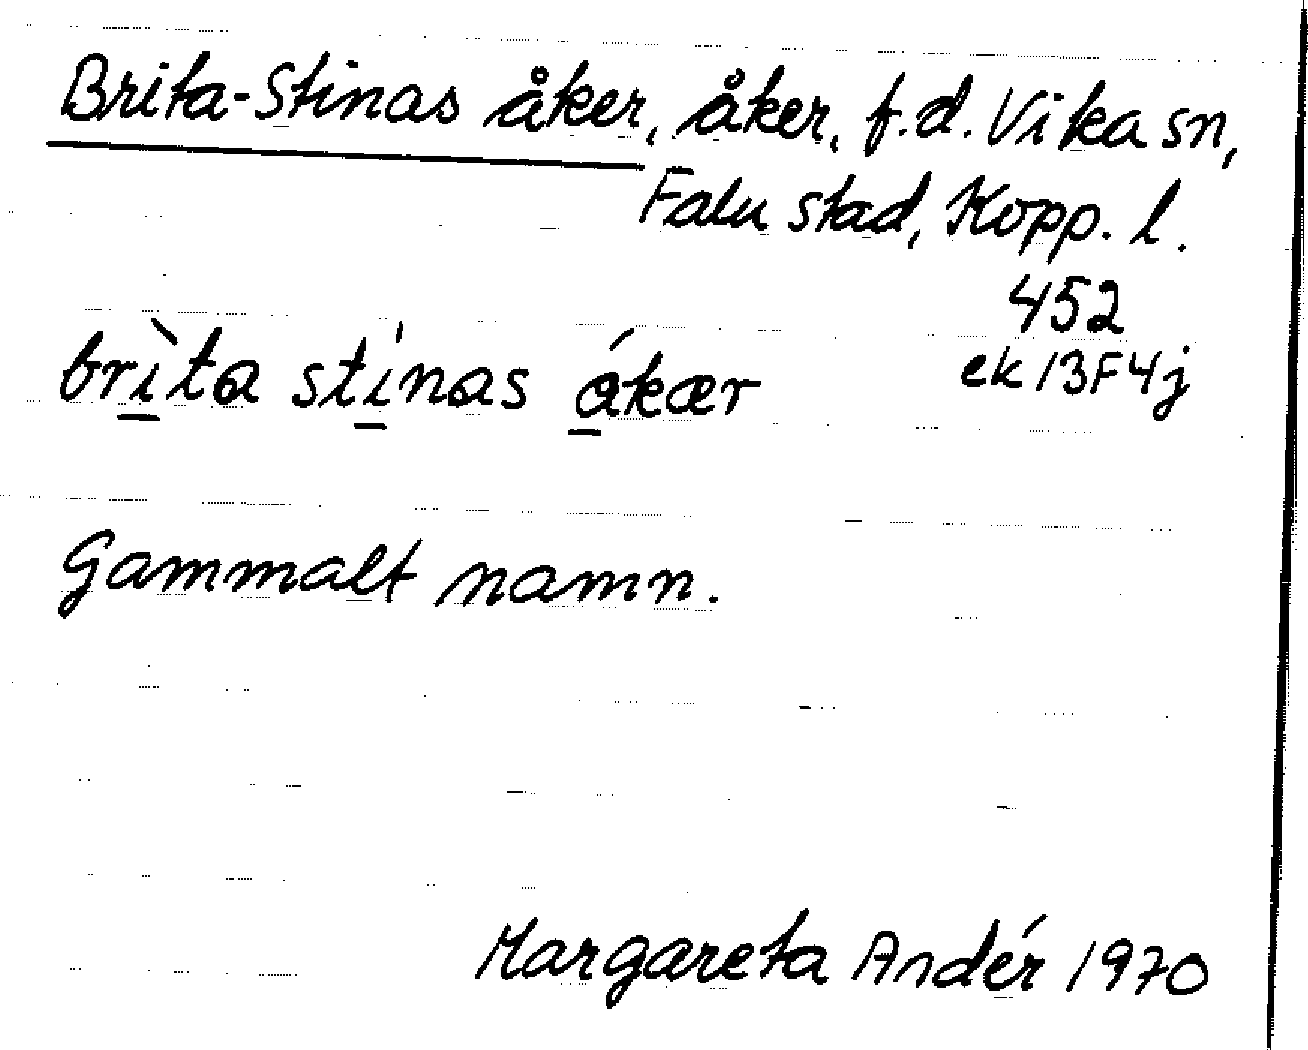 Brita-Stinas åker, åker, f.d. Vika sn,
Falu stad, Kopp. l.
452
ek 13F4j
brìta stínas ákær
Gammalt namn.
Margareta Andér 1970